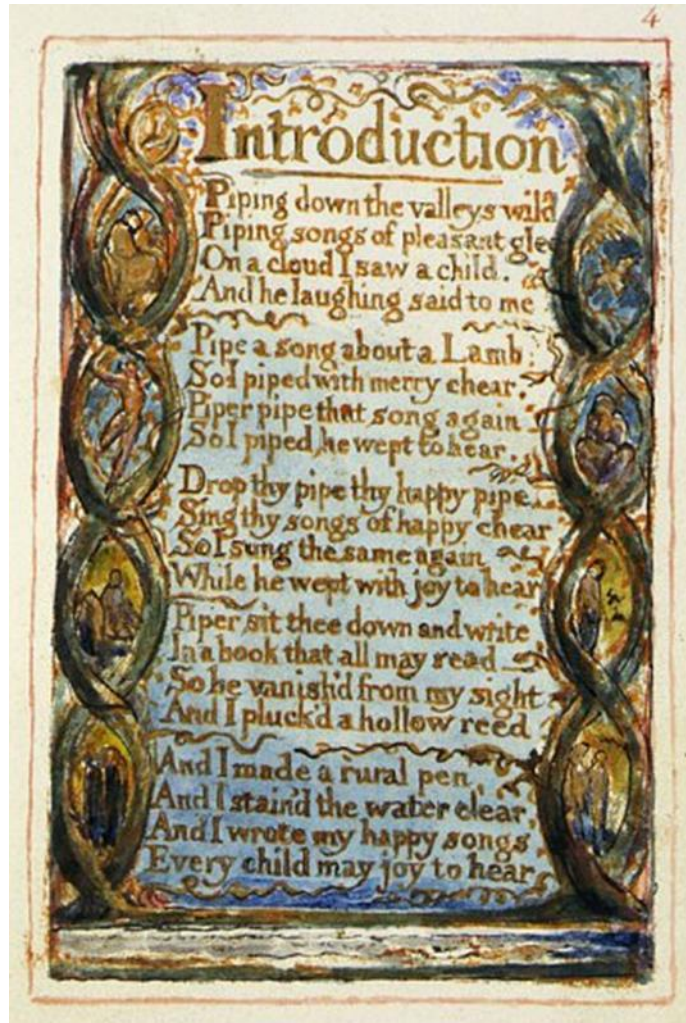 4
Introduction
Piping down the valleys wild
Piping songs of pleasant glee
On a cloud I saw a child.
And he laughing said to me
Pipe a song about a Lamb:
So I piped with merry chear.
Piper pipe that song again
So I piped, he wept to hear.
Drop thy pipe thy happy pipe
Sing thy songs of happy chear
So I sung the same again
While he wept with joy to hear
Piper sit thee down and write
In a book that all may read
So he vanish'd from my sight
And I pluck'd a hollow reed
And I made a rural pen,
And I stain'd the water clear,
And I wrote my happy songs
Every child may joy to hear